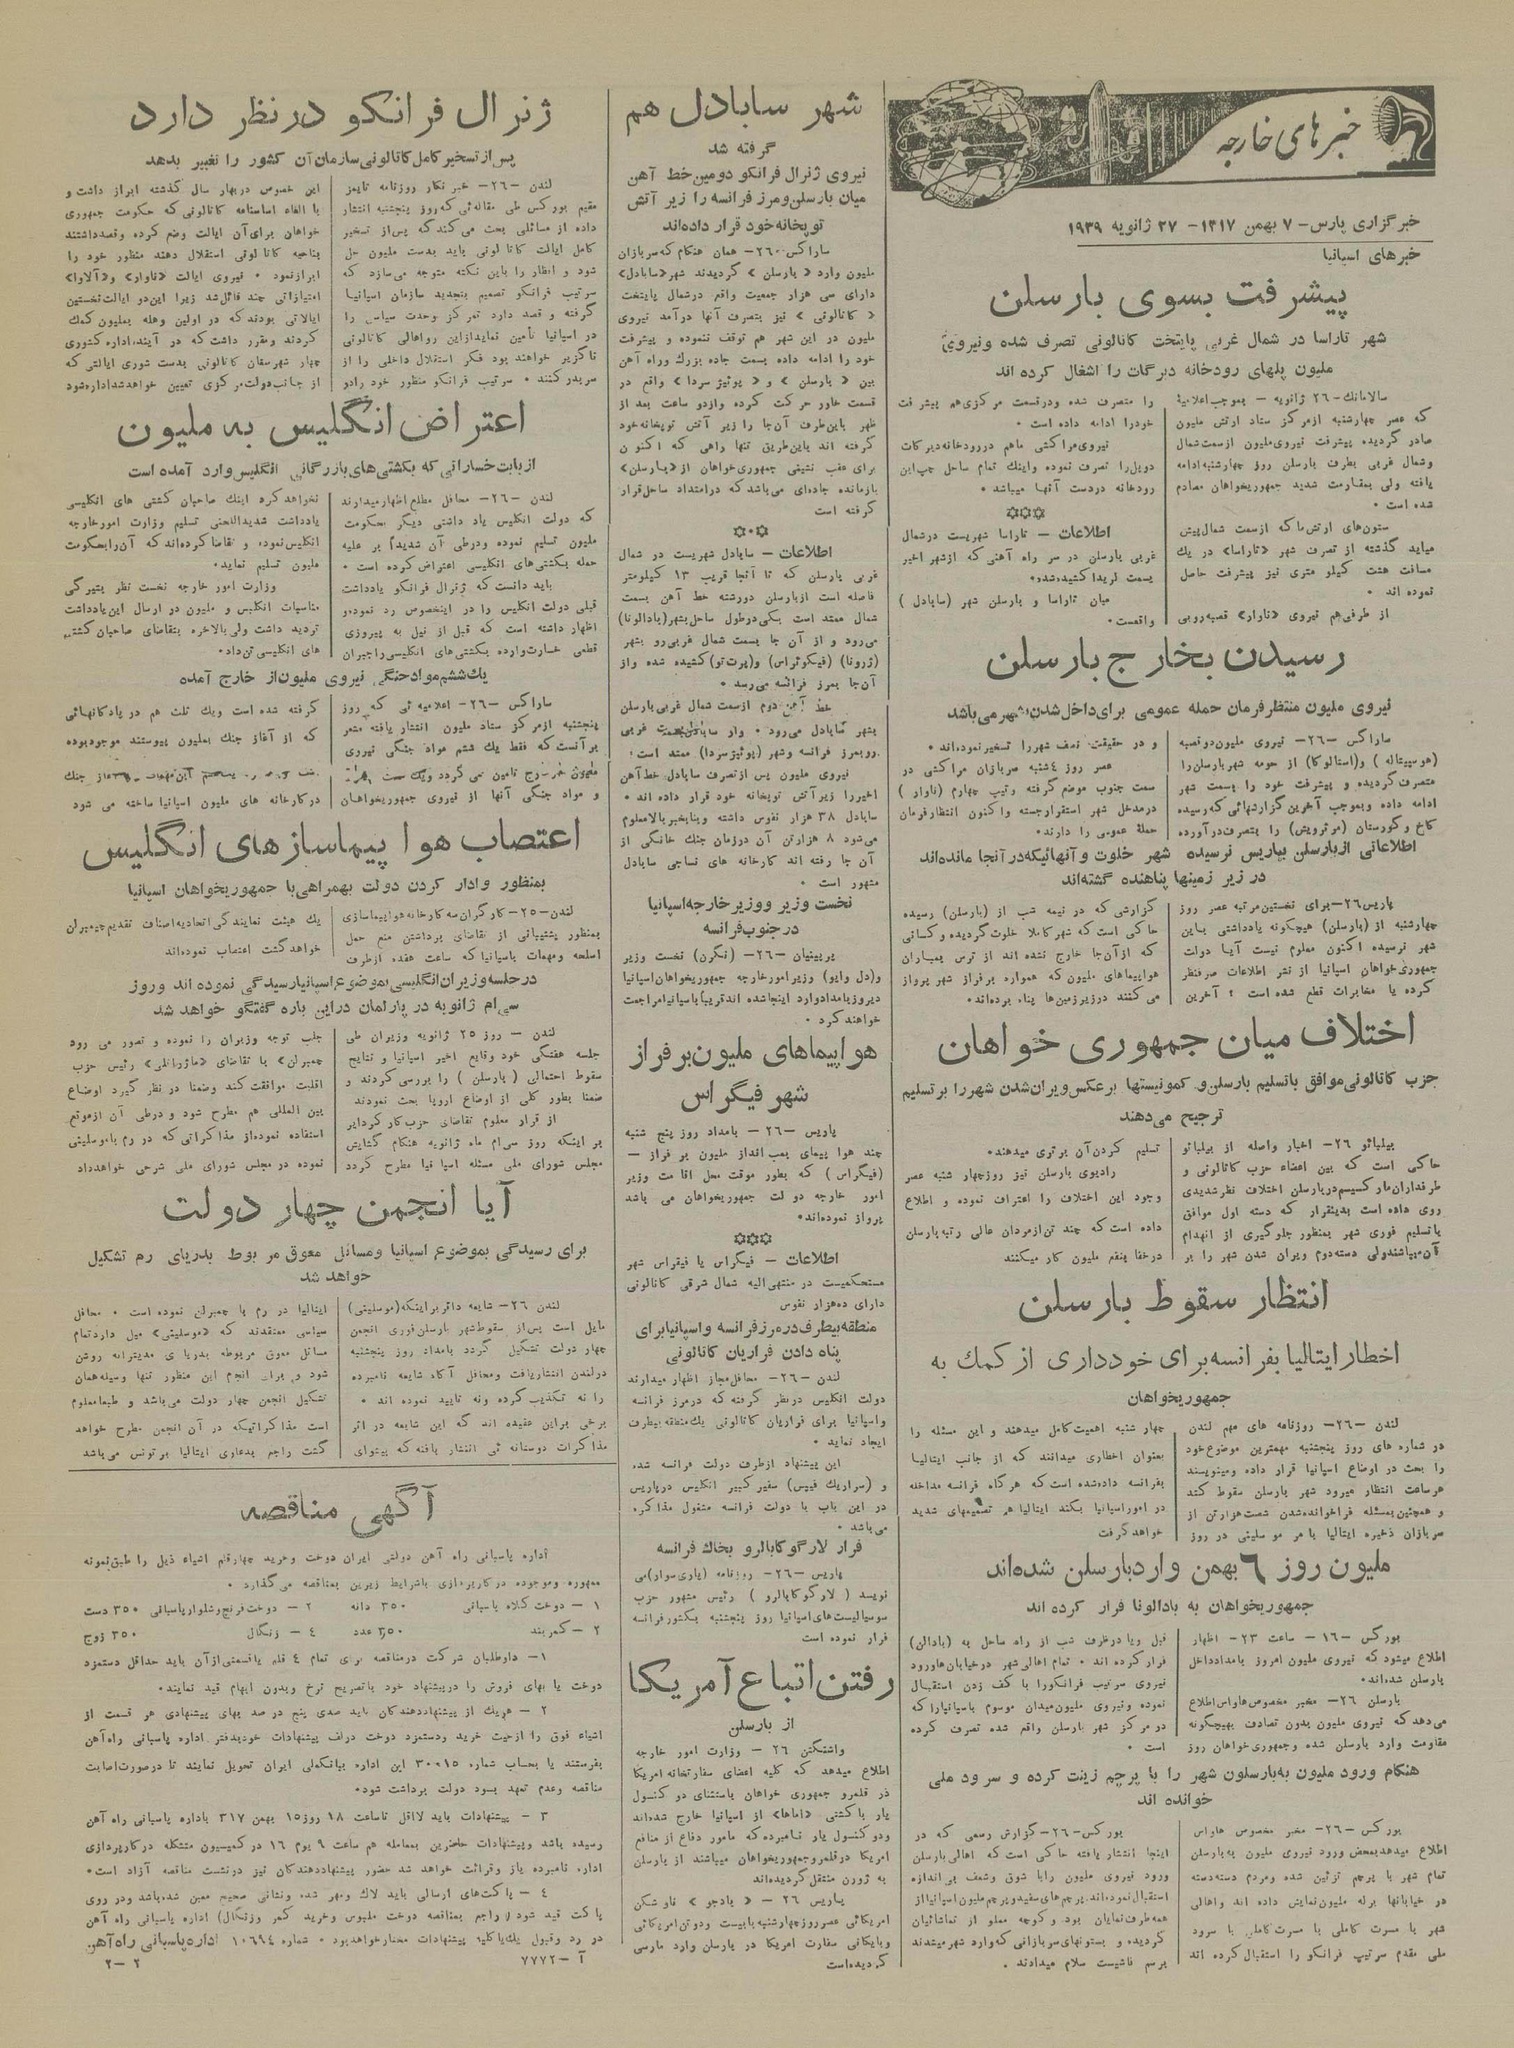 خبرهای خارجه
خبرگزاری پارس - ۷ بهمن ۱۳۱۷ - ۲۷ ژانویه ۱۹۳۹
خبرهای اسپانیا
پیشرفت بسوی بارسلن
شهر تاراسا در شمال غربی پایتخت کاتالونی تصرف شده و نیروی
ملیون پلهای رودخانه دبرگات را اشغال کرده اند
سالامانك - ۲٦ ژانویه - بموجب اعلامیهٔ
که عصر چهارشنبه از مرکز ستاد ارتش ملیون
صادر گردیده پیشرفت نیروی ملیون از سمت شمال
وشمال غربی بطرف بارسلن روز چهارشنبه ادامه
یافته ولی بمقاومت شدید جمهوریخواهان مصادم
شده است •
ستون‌های ارتش ما که از سمت شمال پیش
میاید گذشته از تصرف شهر «تاراسا» در یك
مسافت هشت کیلو متری نیز پیشرفت حاصل
نموده اند •
از طرفی هم نیروی «ناوار» قصبه روبی
را متصرف شده ودرقسمت مرکزی هم پیشرفت
خودرا ادامه داده است •
نیروی مراکشی ماهم دررودخانه دبرکات
دوپل را تصرف نموده واینك تمام ساحل چپ این
رودخانه دردست آنها میباشد •
اطلاعات - تاراسا شهریست درشمال
غربی بارسلن در سر راه آهنی که ازشهر اخیر
بسمت لریدا کشیده شده•
میان تاراسا و بارسلن شهر ( سابادل )
واقعست•
رسیدن بخارج بارسلن
نیروی ملیون منتظر فرمان حمله عمومی برای داخل شدن بشهر می‌باشد
ساراگس - ۲٦- نیروی ملیون دو قصبه
(هوسپیتاله ) و(استالوکا) از حومه شهر بارسلن را
متصرف گردیده و پیشرفت خود را بسمت شهر
ادامه داده وبموجب آخرین گزارشهائی که رسیده
کاخ و کورستان (مونژویش) را بتصرف درآورده
و در حقیقت نصف شهر را تسخیر نموده‌اند •
عصر روز ٤شنبه سربازان مراکشی در
سمت جنوب موضع گرفته وتیپ چهارم (ناوار )
درمدخل شهر استقرار جسته واکنون انتظار فرمان
حملهٔ عمومی را دارند•
اطلاعاتی از بارسلن بپاریس نرسیده شهر خلوت و آنهائیکه در آنجا مانده‌اند
در زیر زمینها پناهنده گشته‌اند
پاریس ۲٦- برای نخستین مرتبه عصر روز
چهارشنبه از (بارسلن) هیچگونه یادداشتی باین
شهر نرسیده اکنون معلوم نیست آیا دولت
جمهوری خواهان اسپانیا از نشر اطلاعات صرفنظر
کرده یا مخابرات قطع شده است ؟ آخرین
گزارشی که در نیمه شب از (بارسلن) رسیده
حاکی است که شهر کاملا خلوت گردیده و کسانی
که از آنجا خارج نشده اند از ترس بمباران
هواپیماهای ملیون که همواره برفراز شهر پرواز
می کنند درزیرزمین‌ها پناه برده‌اند•
اختلاف میان جمهوری خواهان
حزب کاتالونی موافق باتسلیم بارسلن و کمونیستها برعکس ویران شدن شهر را بر تسلیم
ترجیح می‌دهند
بیلبائو ۲٦- اخبار واصله از بیلبائو
حاکی است که بین اعضاء حزب کاتالونی و
طرفداران مارکسیسم دربارسلن اختلاف نظر شدیدی
روی داده است بدینقرار که دسته اول موافق
باتسلیم فوری شهر بمنظور جلوگیری از انهدام
آن میباشند ولی دسته دوم ویران شدن شهر را بر
تسلیم کردن آن برتری میدهند•
رادیوی بارسلن نیز روز چهار شنبه عصر
وجود این اختلاف را اعتراف نموده و اطلاع
داده است که چند تن از مردان عالی رتبه بارسلن
درخفا بنفع ملیون کار میکنند
انتظار سقوط بارسلن
اخطار ایتالیا بفرانسه برای خودداری از کمك به
جمهوریخواهان
لندن -۲٦- روزنامه های مهم لندن
در شماره های روز پنجشنبه مهمترین موضوع خود
را بحث در اوضاع اسپانیا قرار داده ومینویسند
هرساعت انتظار میرود شهر بارسلن سقوط کند
و همچنین بمسئله فراخوانده شدن شصت هزار تن از
سربازان ذخیره ایتالیا بامر موسلینی در روز
چهار شنبه اهمیت کامل میدهند و این مسئله را
بعنوان اخطاری میدانند که از جانب ایتالیا
بفرانسه داده شده است که هرگاه فرانسه مداخله
در امور اسپانیا بکند ایتالیا هم تصمیمهای شدید
خواهد گرفت
ملیون روز ٦ بهمن وارد بارسلن شده‌اند
جمهوریخواهان به بادالونا فرار کرده اند
بورکس -۱٦- ساعت ۲۳- اظهار
اطلاع میشود که نیروی ملیون امروز بامداد داخل
بارسلن شده‌اند•
بارسلن ۲٦- مخبر مخصوص هاواس اطلاع
می‌دهد که نیروی ملیون بدون تصادف بهیچگونه
مقاومت وارد بارسلن شده وجمهوری خواهان روز
قبل ویا درظرف شب از راه ساحل به (بادالن)
فرار کرده اند • تمام اهالی شهر درخیابان‌ها ورود
نیروی سرتیپ فرانکورا با کف زدن استقبال
نموده ونیروی ملیون میدان موسوم باسپانیارا که
در مرکز شهر بارسلن واقع شده تصرف کرده
است •
هنگام ورود ملیون به‌بارسلون شهر را با پرچم زینت کرده و سرود ملی
خوانده اند
بورکس -۲٦- مخبر مخصوص هاواس
اطلاع میدهد بمحض ورود نیروی ملیون به بارسلن
تمام شهر با پرچم تزئین شده ومردم دسته دسته
در خیابانها برله ملیون نمایش داده اند واهالی
شهر با مسرت کاملی با مسرت کاملی با سرود
ملی مقدم سرتیپ فرانکو را استقبال کرده اند
بورکس-۲٦-گزارش رسمی که در
اینجا انتشار یافته حاکی است که اهالی بارسلن
ورود نیروی ملیون رابا شوق وشعف بی اندازه
استقبال نموده‌اند. پرچم های سفید و پرچم ملیون اسپانیا از
همه طرف نمایان بود و کوچه مملو از تماشائیان
گردیده و بستونهای سربازانی که وارد شهر میشدند
برسم فاشیست سلام میدادند •
شهر سابادل هم
گرفته شد
نیروی ژنرال فرانکو دومین خط آهن
میان بارسلن ومرز فرانسه را زیر آتش
توپخانه خود قرار داده‌اند
ساراگس -۲٦۰- همان هنگام که سربازان
ملیون وارد « بارسلن » گردیدند شهر«سابادل»
دارای سی هزار جمعیت واقع درشمال پایتخت
« کاتالونی » نیز بتصرف آنها درآمد نیروی
ملیون در این شهر هم توقف ننموده و پیشرفت
خود را ادامه داده بسمت جاده بزرگ وراه آهن
بین « بارسلن » و « پوئیژسردا » واقع در
قسمت خاور حرکت کرده وازدو ساعت بعد از
ظهر باین‌طرف آن‌جا را زیر آتش توپخانه خود
گرفته اند باین‌طریق تنها راهی که اکنون
برای عقب نشینی جمهوری خواهان از «بارسلن»
بازمانده جاده‌ای می‌باشد که درامتداد ساحل قرار
گرفته است
اطلاعات - سابادل شهریست در شمال
غربی بارسلن که تا آنجا قریب ۱۳ کیلومتر
فاصله است ازبارسلن دورشته خط آهن بسمت
شمال ممتد است یکی درطول ساحل بشهر(بادالونا)
می‌رود و از آن جا بسمت شمال غربی رو بشهر
(ژرونا) (فیکوئراس) و(پرت تو) کشیده شده واز
آن‌جا بمرز فرانسه می‌رسد •
خط آهن دوم ازسمت شمال غربی بارسلن
بشهر سابادل می‌رود • واز سابادل بسمت غربی
روبمرز فرانسه وشهر (پوئیژسردا) ممتد است•
نیروی ملیون پس از تصرف سابادل خط آهن
اخیررا زیر آتش توپخانه خود قرار داده اند •
سابادل ۳۸ هزار نفوس داشته وبنابخبر بالا معلوم
می‌شود ۸ هزارتن آن درزمان جنك خانگی از
آن جا رفته اند کارخانه های نساجی سابادل
مشهور است •
نخست وزیر ووزیر خارجه اسپانیا
در جنوب فرانسه
پرپینیان -۲٦- (نگرن) نخست وزیر
و(دل وایو) وزیر امورخارجه جمهوریخواهان اسپانیا
دیروز بامداد وارد اینجا شده اند قریباً باسپانیا مراجعت
خواهند کرد •
هواپیماهای ملیون بر فراز
شهر فیگراس
پاریس -۲٦- بامداد روز پنج شنبه
چند هوا پیمای بمب انداز ملیون بر فراز -
(فیگراس ) که بطور موقت محل اقامت وزیر
امور خارجه دولت جمهوریخواهان می باشد
پرواز نموده‌اند•
اطلاعات - فیگراس یا فیقراس شهر
مستحکمیست در منتهی الیه شمال شرقی کاتالونی
دارای ده‌هزار نفوس
منطقه بیطرف در مرز فرانسه و اسپانیا برای
پناه دادن فراریان کاتالونی
لندن -۲٦- محافل مجاز اظهار میدارند
دولت انگلیس درنظر گرفته که درمرز فرانسه
واسپانیا برای فراریان کاتالونی یك منطقه بیطرف
ایجاد نماید •
این پیشنهاد ازطرف دولت فرانسه شده
و (سراریك فیپس) سفیر کبیر انگلیس درپاریس
در این باب با دولت فرانسه مشغول مذاکره
می‌باشد •
فرار لارگوکابالرو بخاك فرانسه
پاریس -۲٦- روزنامه (پاری سوار) می
نویسد ( لارگوکابالرو ) رئیس مشهور حزب
سوسیالیست‌های اسپانیا روز پنجشنبه بکشور فرانسه
فرار نموده است
رفتن اتباع آمریکا
از بارسلن
واشنگتن ۲٦ - وزارت امور خارجه
اطلاع میدهد که کلیه اعضای سفارتخانه امریکا
در قلمرو جمهوری خواهان باستثنای دو کنسول
یار باکشتی «اماها» از اسپانیا خارج شده‌اند
ودو کنسول یار نامبرده که مامور دفاع از منافع
امریکا درقلمرو جمهوریخواهان میباشند از بارسلن
به ژورن منتقل گردیده‌اند
پاریس ۲٦ - « بادجو » ناو شکن
امریکائی عصر روز چهارشنبه با بیست ودو تن امریکائی
وبایگانی سفارت امریکا در بارسلن وارد مارسی
گردیده است
ژنرال فرانکو در نظر دارد
پس از تسخیر کامل کاتالونی سازمان آن کشور را تغییر بدهد
لندن -۲٦- خبر نکار روزنامه تایمز
مقیم بورکس طی مقاله ئی که روز پنجشنبه انتشار
داده از مسائلی بحث می کند که پس از تسخیر
کامل ایالت کاتالونی باید بدست ملیون حل
شود و انظار را باین نکته متوجه می‌سازد که
سرتیپ فرانکو تصمیم بتجدید سازمان اسپانیا
گرفته و قصد دارد تمرکز وحدت سیاسی را
در اسپانیا تأمین نماید از این رو اهالی کاتالونی
ناگزیر خواهند بود فکر استقلال داخلی را از
سر بدر کنند • سرتیپ فرانکو منظور خود را دو
این خصوص در بهار سال گذشته ابراز داشت و
با الغاء اساسنامه کاتالونی که حکومت جمهوری
خواهان برای آن ایالت وضع کرده وقصد داشتند
بناحیه کاتالونی استقلال دهند منظور خود را
ابراز نمود • نیروی ایالت «ناوار» و«آلاوا»
امتیازاتی چند قائل شد زیرا این دو ایالت نخستین
ایالاتی بودند که در اولین وهله بملیون کمك
کردند ومقرر داشت که در آینده اداره کشوری
چهار شهرستان کاتالونی بدست شورای ایالتی که
از جانب دولت مرکزی تعیین خواهد شد اداره شود
اعتراض انگلیس به ملیون
از بابت خساراتی که بکشتی های بازرگانی انگلیس وارد آمده است
لندن -۲٦- محافل مطلع اظهار میدارند
که دولت انگلیس یاد داشتی دیگر بحکومت
ملیون تسلیم نموده ودرطی آن شدیداً بر علیه
حمله بکشتی‌های انگلیسی اعتراض کرده است •
باید دانست که ژنرال فرانکو یادداشت
قبلی دولت انگلیس را در اینخصوص رد نموده و
اظهار داشته است که قبل از نیل به پیروزی
قطعی خسارت وارده بکشتی‌های انگلیسی را جبران
نخواهد کرد اینك صاحبان کشتی های انگلیسی
یادداشت شدیداللحنی تسلیم وزارت امور خارجه
انگلیس نموده و تقاضا کرده‌اند که آن را بحکومت
ملیون تسلیم نماید•
وزارت امور خارجه نخست نظر بتیرگی
مناسبات انگلیس و ملیون در ارسال این یادداشت
تردید داشت ولی بالاخره بتقاضای صاحبان کشتی
های انگلیسی تن داد•
یك ششم مواد جنگی نیروی ملیون از خارج آمده
ساراگس -۲٦- اعلامیه ئی که روز
پنجشنبه ازمرکز ستاد ملیون انتشار یافته مشعر
برآنست که فقط یك ششم مواد جنگی نیروی
ملیون از خارج تامین می گردد ویك
و مواد جنگی آنها از نیروی جمهوریخواهان
گرفته شده است ویك ثلث هم در پادگانهائی
که از آغاز جنك بملیون پیوستند موجود بوده
درکارخانه های ملیون اسپانیا ساخته می شود
اعتصاب هوا پیماسازهای انگلیس
بمنظور وادار کردن دولت بهمراهی با جمهوریخواهان اسپانیا
لندن -۲۵- کارگران سه کارخانه هواپیماسازی
بمنظور پشتیبانی از تقاضای برداشتن منع حمل
اسلحه ومهمات باسپانیا که ساعت هفده ازطرف
یك هیئت نمایندگی اتحادیه اصناف تقدیم چمبرلن
خواهد گشت اعتصاب نموده‌اند
در جلسه وزیران انگلیسی بموضوع اسپانیا رسیدگی نموده اند وروز
سی‌ام ژانویه در پارلمان در این باره گفتگو خواهد شد
لندن - روز ۲۵ ژانویه وزیران طی
جلسه هفتگی خود وقایع اخیر اسپانیا و نتایج
سقوط احتمالی ( بارسلن ) را بررسی کردند و
ضمناً بطور کلی از اوضاع اروپا بحث نمودند
از قرار معلوم تقاضای حزب کارگر دایر
بر اینکه روز سی‌ام ماه ژانویه هنگام گشایش
مجلس شورای ملی مسئله اسپانیا مطرح گردد
جلب توجه وزیران را نموده و تصور می رود
چمبرلن» با تقاضای «ماژوراتلی» رئیس حزب
اقلیت موافقت کند وضمناً در نظر گیرد اوضاع
بین المللی هم مطرح شود و درطی آن ازموقع
استفاده نموده از مذاکراتی که در رم با موسلینی
نموده در مجلس شورای ملی شرحی خواهد داد
آیا انجمن چهار دولت
برای رسیدگی بموضوع اسپانیا ومسائل معوق مربوط بدریای رم تشکیل
خواهد شد
لندن ۲٦- شایعه دائر براینکه (موسلینی)
مایل است پس از سقوط شهر بارسلن فوری انجمن
چهار دولت تشکیل گردد بامداد روز پنجشنبه
درلندن انتشار یافت ومحافل آگاه شایعه نامبرده
را نه تکذیب کرده ونه تایید نموده اند •
برخی براین عقیده اند که این شایعه در اثر
مذاکرات دوستانه ئی انتشار یافته که پیشوای
ایتالیا در رم با چمبرلن نموده است • محافل
سیاسی معتقدند که «موسلینی» میل دارد تمام
مسائل معوق مربوطه بدریای مدیترانه روشن
شود و برای انجام این منظور تنها وسیله همان
تشکیل انجمن چهار دولت می‌باشد و طبعاً معلوم
است مذاکراتیکه در آن انجمن مطرح خواهد
گشت راجع بدعاوی ایتالیا بر تونس می‌باشد
آگهی مناقصه
اداره پاسبانی راه آهن دولتی ایران دوخت وخرید چهار قلم اشیاء ذیل را طبق نمونه
ممهوره وموجوده درکارپردازی باشرایط زیرین بمناقصه می گذارد •
۱ - دوخت کلاه پاسبانی ۳۵۰ دانه ۲ - دوخت فرنج وشلوار پاسبانی ۳۵۰ دست
۳ - کمربند ۳۵۰ عدد ٤ - زنگال ۳۵۰ زوج
۱- داوطلبان شرکت درمناقصه برای تمام ٤ قلم یا قسمتی از آن باید حداقل دستمزد
دوخت یا بهای فروش را درپیشنهاد خود باتصریح نرخ وبدون ابهام قید نمایند•
۲ - هریك از پیشنهاد دهندگان باید صدی پنج در صد بهای پیشنهادی هر قسمت از
اشیاء فوق را ازحیث خرید ودستمزد دوخت درلف پیشنهادات خود بدفتر اداره پاسبانی راه آهن
بفرستند یا بحساب شماره ۳۰۰۱۵ این اداره ببانك ملی ایران تحویل نمایند تا درصورت اصابت
مناقصه وعدم تعهد بسود دولت برداشت شود•
۳ - پیشنهادات باید لااقل تاساعت ۱۸ روز ۱۵ بهمن ۳۱۷ باداره پاسبانی راه آهن
رسیده باشد وپیشنهادات حاضرین بمعامله هم ساعت ۹ یوم ۱٦ در کمیسیون متشکله درکارپردازی
اداره نامبرده باز وقرائت خواهد شد حضور پیشنهاد دهندگان نیز درنشست مناقصه آزاد است•
٤ - پاکت‌های ارسالی باید لاك ومهر شده ونشانی صحیح معین شده باشد ودر روی
پاکت قید شود (راجع بمناقصه دوخت ملبوس وخرید کمر وزنگال) اداره پاسبانی راه آهن
در رد وقبول یك یا کلیه پیشنهادات مختار خواهد بود • شماره ۱۰٦۹٤ اداره پاسبانی راه آهن
آ -۷۷۷۲ ۲-۲